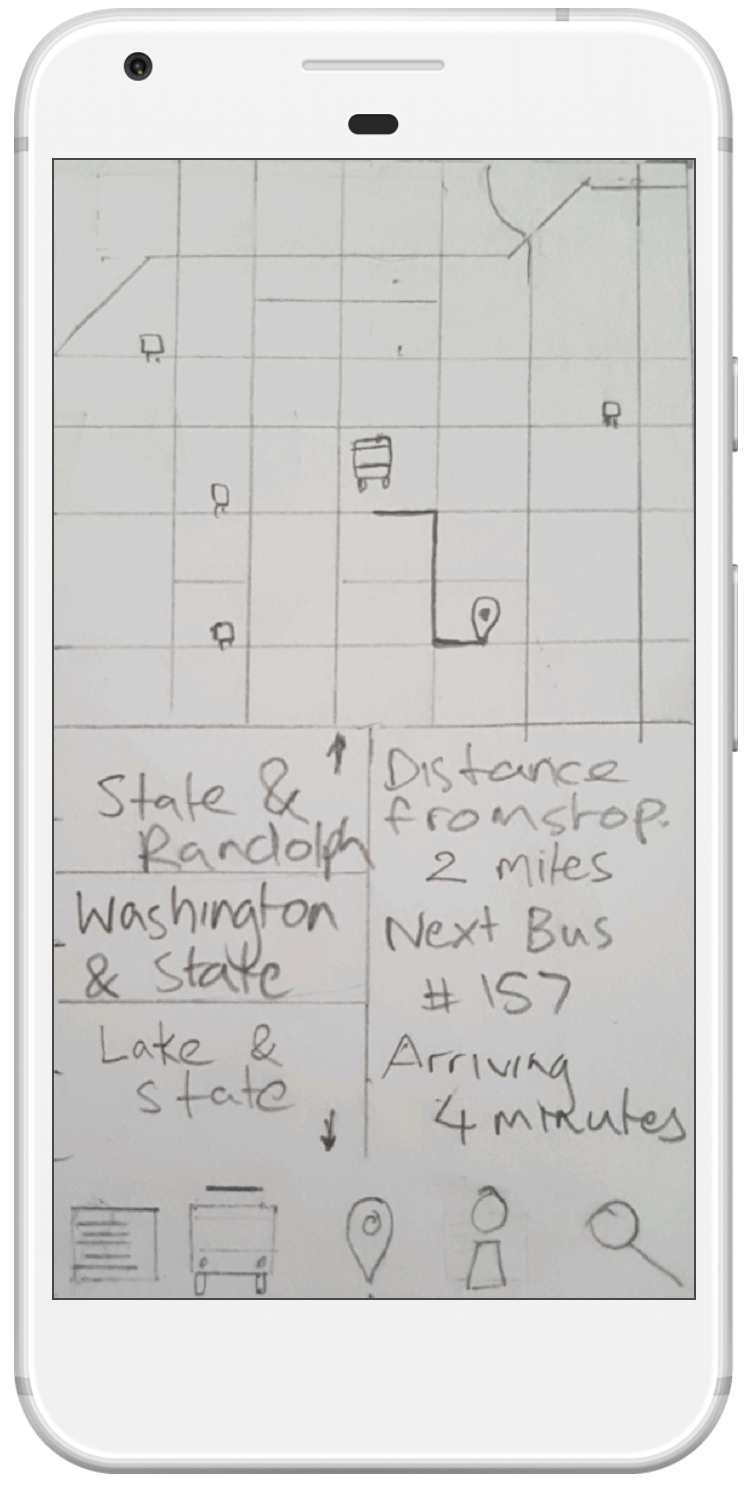 State &
Randolph
Washington
& State
Lake &
state
Distance
from stop.
2 miles
Next Bus
# 157
Arriving
4 minutes